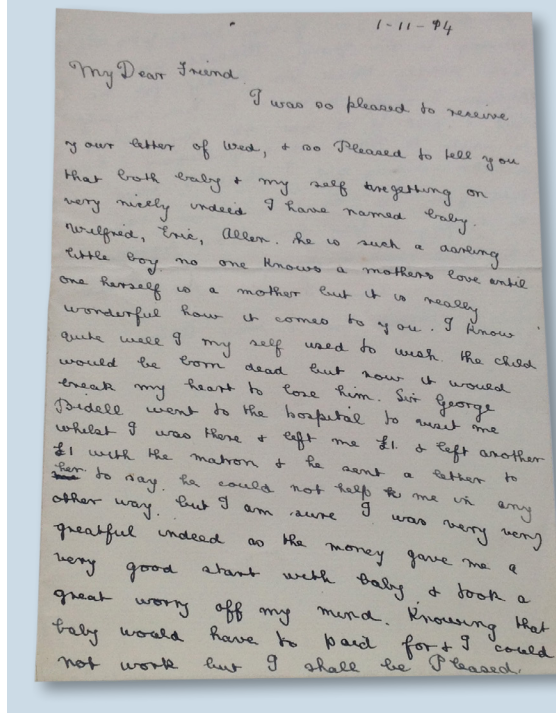 1-11-94
My Dear Friend.
I was so pleased to receive
your letter of Wed, & so Pleased to tell you
that both baby & my self are getting on
very nicely indeed I have named baby.
Wilfred, Eric, Allen. he is such a darling
little boy no one knows a mothers love until
one herself is a mother but it is really
wonderful how it comes to you. I know
quite well I my self used to wish the child
would be born dead but now it would
break my heart to lose him. Sir George
Bidell went to the hospital to visit me
whilst I was there & left me £1. & left another
£1 with the matron & he sent a letter to
her to say. he could not help me in any
other way. but I am sure I was very very
greatful indeed as the money gave me a
very good start with baby & took a
great worry off my mind. Knowing that
baby would have to paid for & I could
not work but I shall be Pleased.